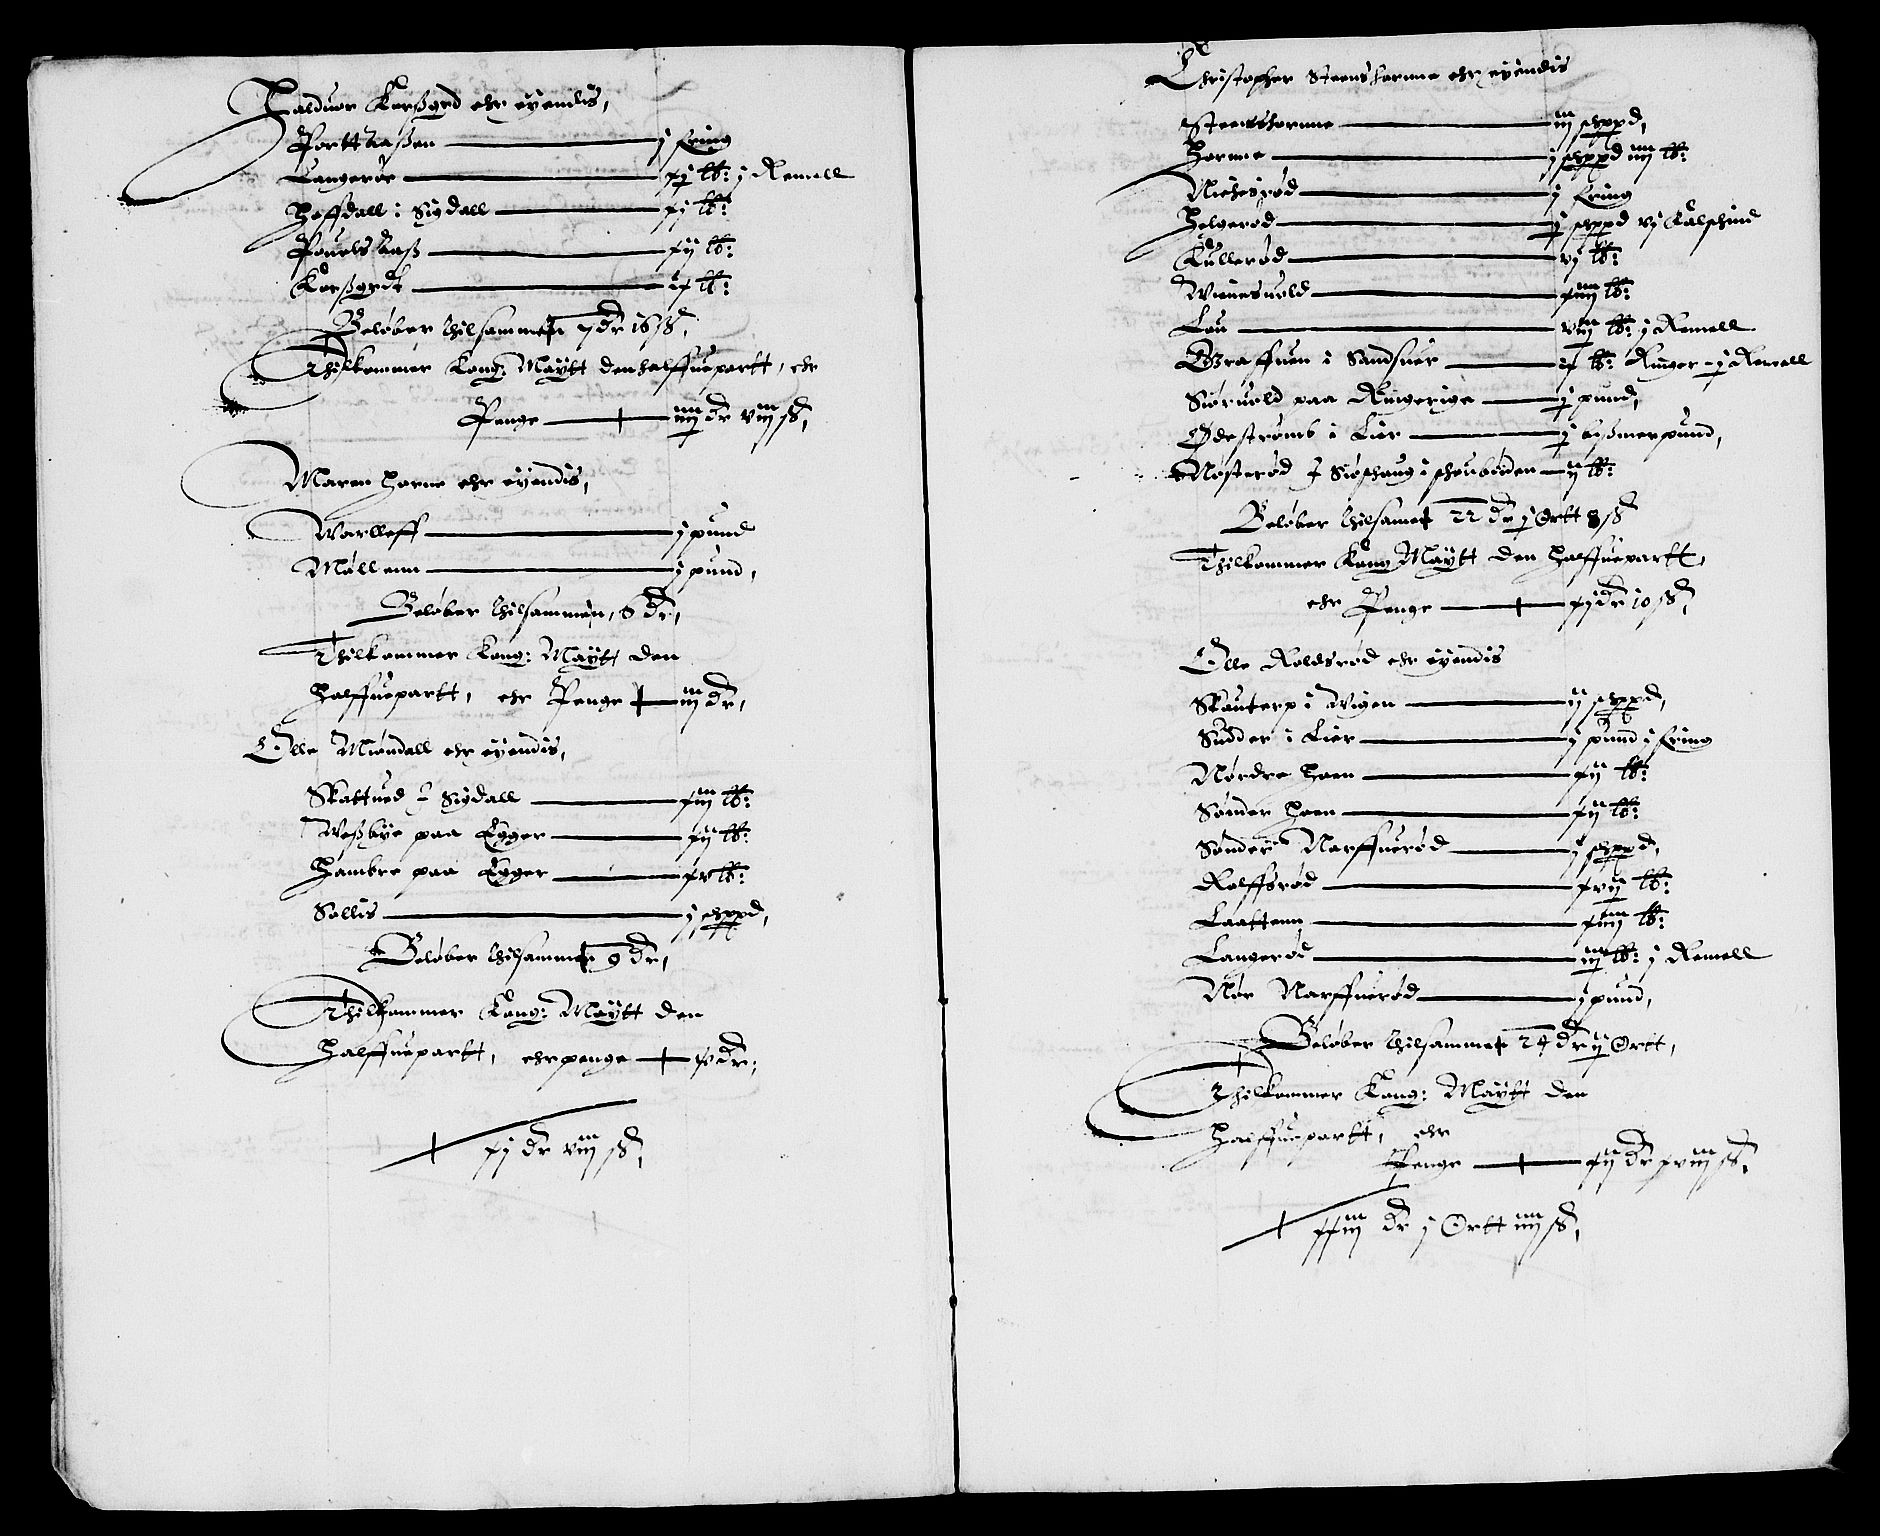 Halduor Korßgrd ehr eyendis,
Portt aaßen — j fring
Langerøe — xj lb: j Remell
Hoffdall i Sigdall — xj lb:
Pouelsaaß — xij lb:
Korßgrdt — ix lb:
Beløber thilsammen 7 dr 18 ß,
Thilkommer Kong: Maytt den halffuepartt, ehr
Penge — iiij dr viij ß,
Maren Horne ehr eyendis,
Warlleff — j pund
Møllenn — j pund,
Beløber thilsammen, 6 dr,
Thilkommer Kong: Maytt den
halffuepartt, ehr Penge — iij dr,
Olle Miøndall ehr eyendis,
Skattued J Sigdall — xiij lb:
Weßbye paa Egger — xij lb:
Hambre paa Egger — xv lb:
Sollis — j schppd,
Beløber thilsammen 9 dr,
Thilkommer Kong: Maytt den
halffuepartt, ehr penge — dr,
xj dr viij ß,
Christopher Steenshorne ehr eyendis
Steenshorne — iij schppd,
Horne — j schppd iiij lb:
Nichesrød — j fring
Helgerød — j schppd vj Kalschind
Kullerød — vj lb:
Winesuold — xiiij lb:
Lou — viij lb: j Remell
Graffuen i Sandsuer — ix lb: Ringer j Remell
Siøruold paa Ringerige — j pund,
Ødestrømb i Lier — j bißmerpund,
Nøsterød J Siøshaug i schoubøden — ij lb:
Beløber thilsamen 22 dr j Ortt 8 ß
Thilkommer Kong Maytt den halffuepartt,
ehr Penge — xj dr 10 ß,
Olle Roldsrød ehr eyendis
Skauterp i Wigen — ij schppd,
Sudder i Lier — j pund j fring
Nordre Hoen — xij lb:
Sønder Hoen — xij lb:
Sønder Narffuerød — j schppd,
Rolffsrød — xvij lb:
Laattenn — xiiij lb:
Langerød — iiij lb: j Remell
Nør Narffuerød — j pund,
Beløber thilsammen 24 dr ij Ortt,
Thilkommer Kong: Maytt den
halffuepartt, ehr
Penge — xij dr xviij ß,
xxiij dr j Ortt iiij ß,